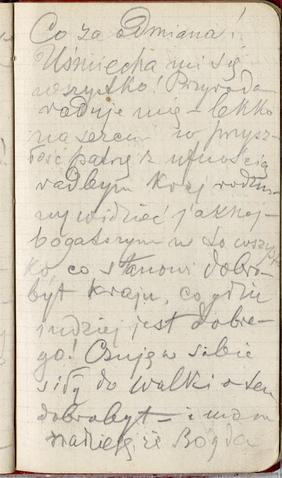 Co za odmiana!
Uśmiecha mi się
wszystko! Przyroda
raduje mię – lekko
na sercu w przysz-
łość patrzę z ufnością
radbym kraj rodzin-
ny widzieć jaknaj-
bogatszym w to wszyst
ko, co stanowi dobro-
byt kraju, co gdzie
indziej jest dobre-
go! Czuję w sobie
siły do walki o ten
dobrobyt – i mam
nadzieję że Bóg da